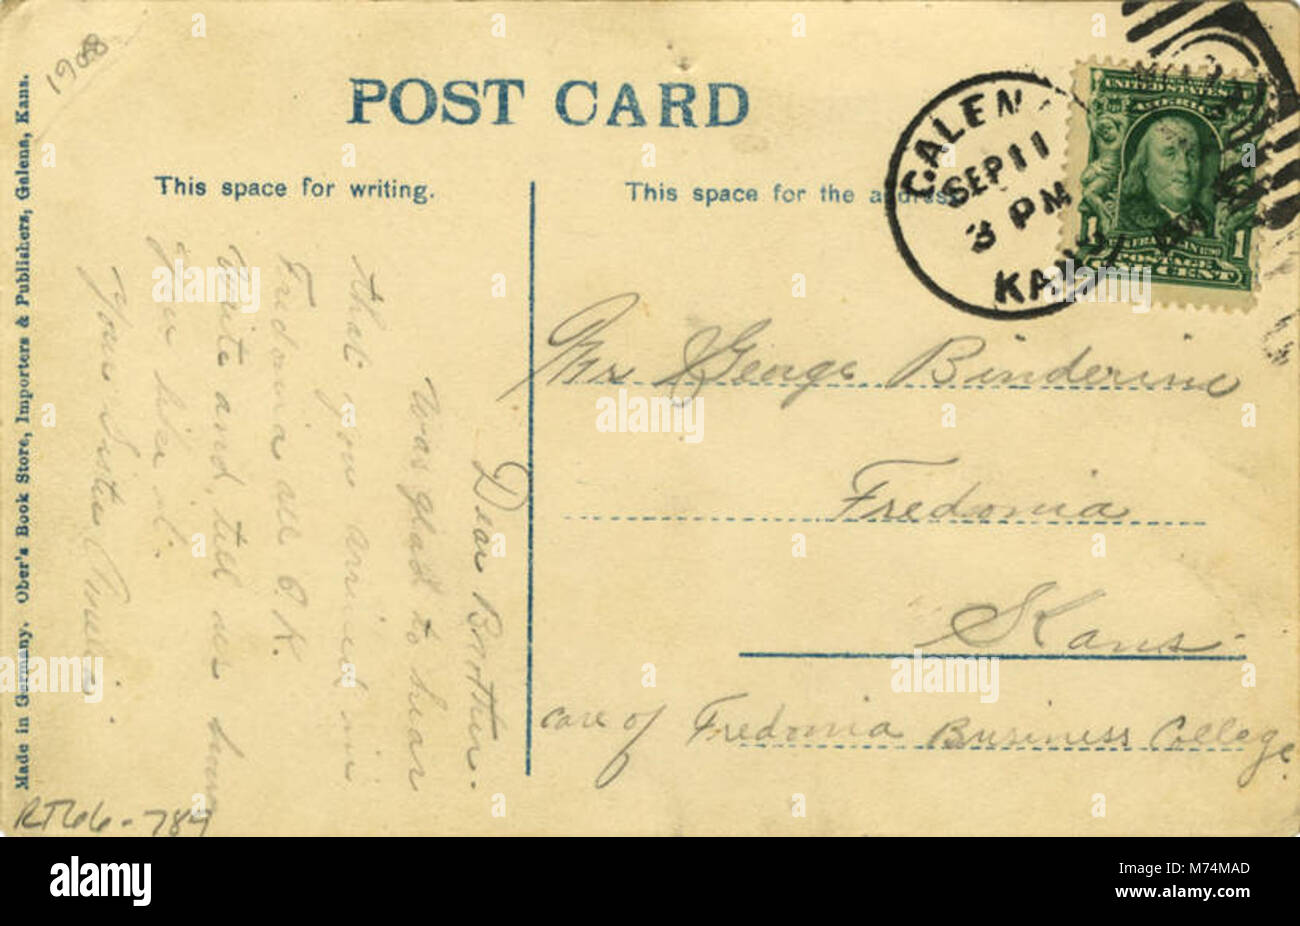 1908
POST CARD
This space for writing.
This space for the address
GALENA
SEP 11
3 PM
KAN
UNITED STATES
AMERICA
1 1
Mr George Binderine
Fredonia
Kans
care of Fredonia Business College.
Dear Brother.
Was glad to hear
that you arrived in
Fredonia all O.K.
Write and tell us how
you like it.
Your Sister
Made in Germany. Ober's Book Store, Importers & Publishers, Galena, Kans.
RT66-789
alamy
Image ID: M74MAD
www.alamy.com